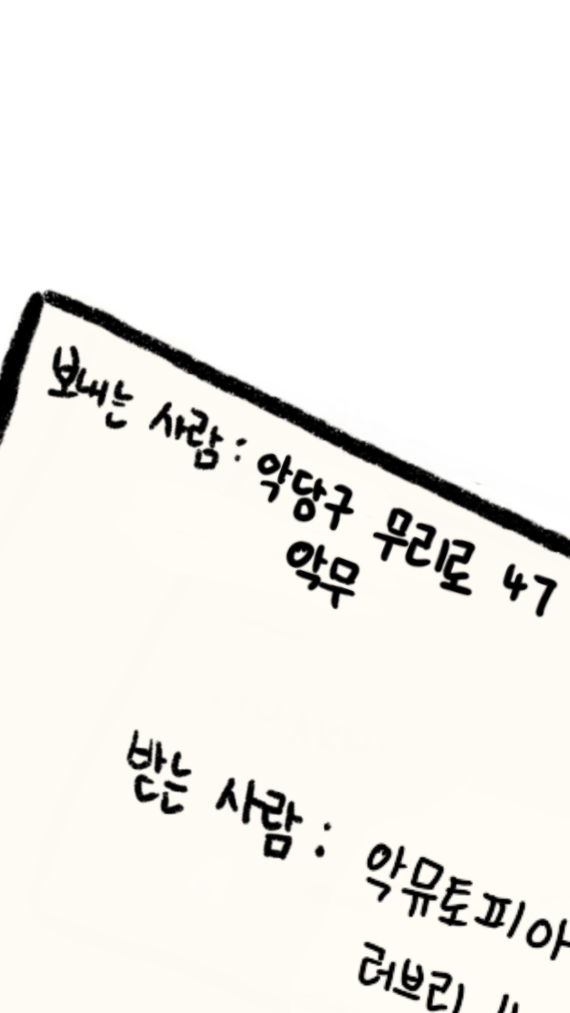 보내는 사람 : 악당구 무리로 47
악무
받는 사람 : 악뮤토피아
러브리